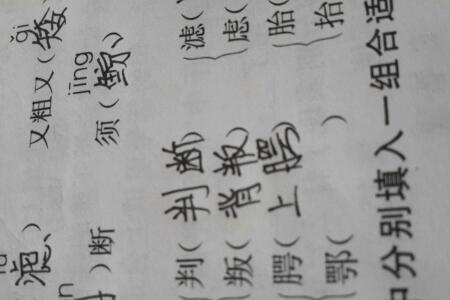 ǎi
滤、 又粗又(矮、
jīng
)断 须(鲸、
判(判断) 滤(
叛(背叛) 虑(
腭(上腭) 胎(
鄂( ) 抬(
分别填入一组合适